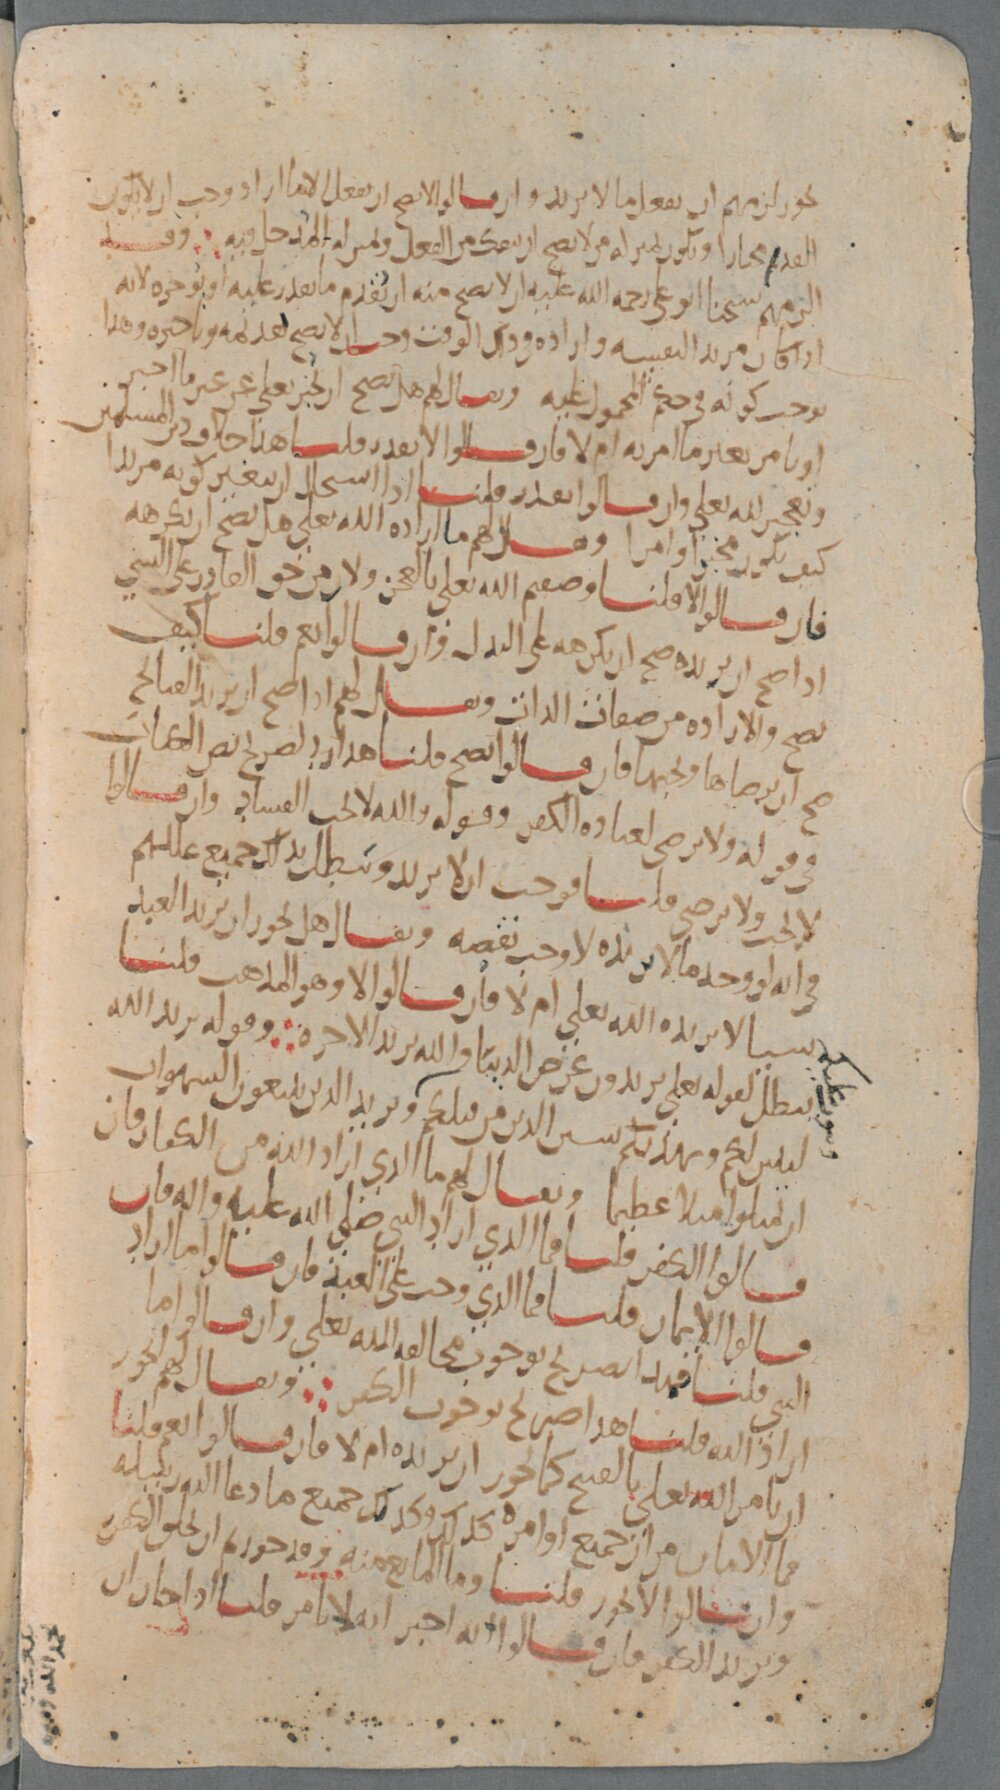 يجوز لزمهم ان يفعل ما لا يريد وان قالوا لا يصح ان يفعل الا ما اراد وجب ان لا يكون
القديم مختارا ويكون بمنزلة من لا يصح ان ينفك من الفعل وبمنزلة المدخل فيه وقد
الزمهم شيخنا ابو علي رحمه الله عليه ان لا يصح منه ان يقدم ما يقدر عليه او يؤخره لانه
اذا كان مريدا لنفسه واراده في ذلك الوقت وجب ان لا يصح تقديمه وتاخيره وهذا
يوجب كونه في حكم المحمول عليه ويقال لهم هل يصح ان يخبر تعلي عن غير ما اخبر
او يامر بغير ما امر به ام لا فان قالوا لا يقدر قلنا هذا خلاف دين المسلمين
وتعجيز لله تعلي وان قالوا يقدر قلنا اذا استحال ان يتغير كونه مريدا
كيف يكون مخبرا وامرا ويقال لهم ما اراده الله تعلي هل يصح ان يكرهه
فان قالوا لا قلنا وصفتم الله تعلي بالعجز ولان من حق القادر على الشي
اذا صح ان يريده صح ان يكرهه على البدل وان قالوا نعم قلنا كيف
يصح والارادة من صفات الذات ويقال لهم اذا صح ان يريد القبائح
صح ان يرضاها ويحبها فان قالوا يصح قلنا هذا رد لصريح نص الكتاب
في قوله ولا يرضى لعباده الكفر وقوله والله لا يحب الفساد وان قالوا
لا يحب ولا يرضى قلنا فوجب ان لا يريد ويبطل بذلك جميع عللهم
في انه لو وجد ما لا يريده لاوجب نقصه ويقال هل يجوز ان يريد العبد
شيا لا يريده الله تعلي ام لا فان قالوا لا وهو المذهب قلنا
يبطل لقوله تعلي يريدون عرض الدنيا والله يريد الاخرة وقوله يريد الله
ليبين لكم ويهديكم سنن الذين من قبلكم ويريد الذين يتبعون الشهوات
ويتوب عليكم
ان تميلوا ميلا عظيما ويقال لهم ما الذي اراد الله من الكفار فان
قالوا الكفر قلنا فما الذي اراد النبي صلي الله عليه واله فان
قالوا الايمان قلنا فما الذي وجب على العبد فان قالوا ما اراد
النبي قلنا فهذا تصريح بوجوب مخالفة الله تعلي وان قالوا ما
اراد الله قلنا هذا صريح بوجوب الكفر ويقال لهم ايجوز
ان يامر الله تعلي بالقبيح كما يجوز ان يريده ام لا فان قالوا نعم قلنا
فما الامان من ان جميع اوامره كذلك وكذلك جميع ما دعا الله ريكتبه
وان قالوا لا يجوز قلنا وما المانع منه وقد جوزتم ان يخلق الكفر
ويريد الكفر فان قالوا انه اخبر انه لا يامر قلنا اذا جاز ان